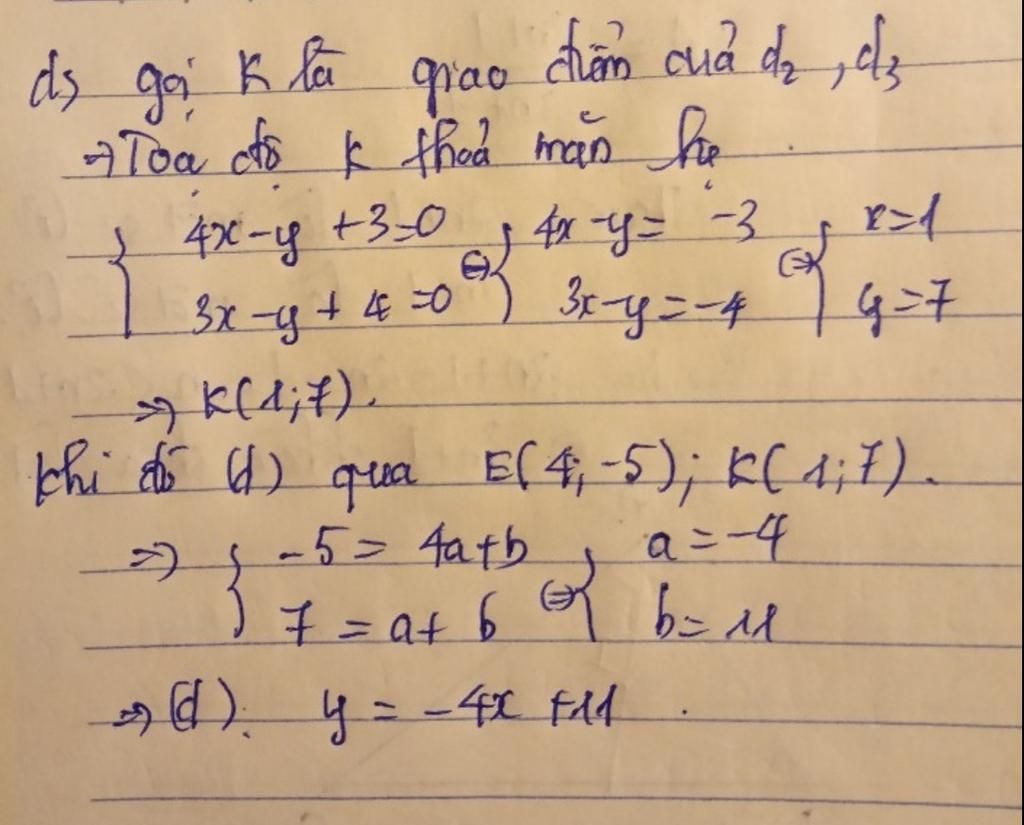 d) gọi K là giao điểm của d₂, d₃
=> Toạ độ K thoả mãn hệ
{ 4x-y+3=0 <=> { 4x-y=-3 <=> { x=1
{ 3x-y+4=0 { 3x-y=-4 { y=7
=> K(1;7).
Khi đó (d) qua E(4;-5); K(1;7).
=> { -5=4a+b <=> { a=-4
{ 7=a+b { b=11
=> (d): y=-4x+11.